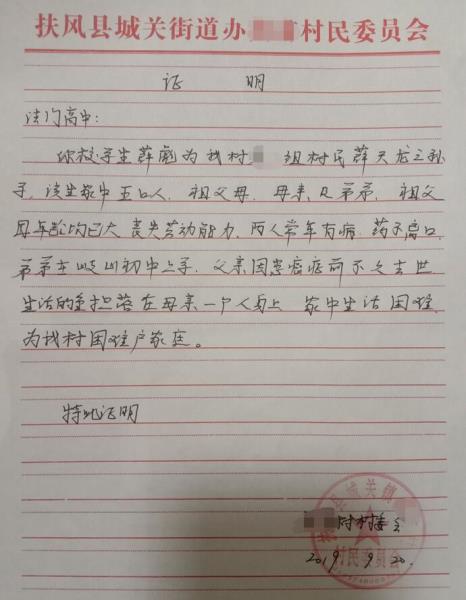 扶风县城关街道办 村民委员会
证 明
法门高中:
你校学生薛彪为我村 组村民薛天龙之孙
子,该生家中五口人,祖父母,母亲及弟弟,祖父
母年龄均已大 丧失劳动能力,两人常年有病,药不离口,
弟弟在岐山初中上学,父亲因患癌症前不久去世
生活的重担落在母亲一个人身上 家中生活困难,
为我村困难户家庭。
特此证明
村村委会
2019 9 20.
村民委员会